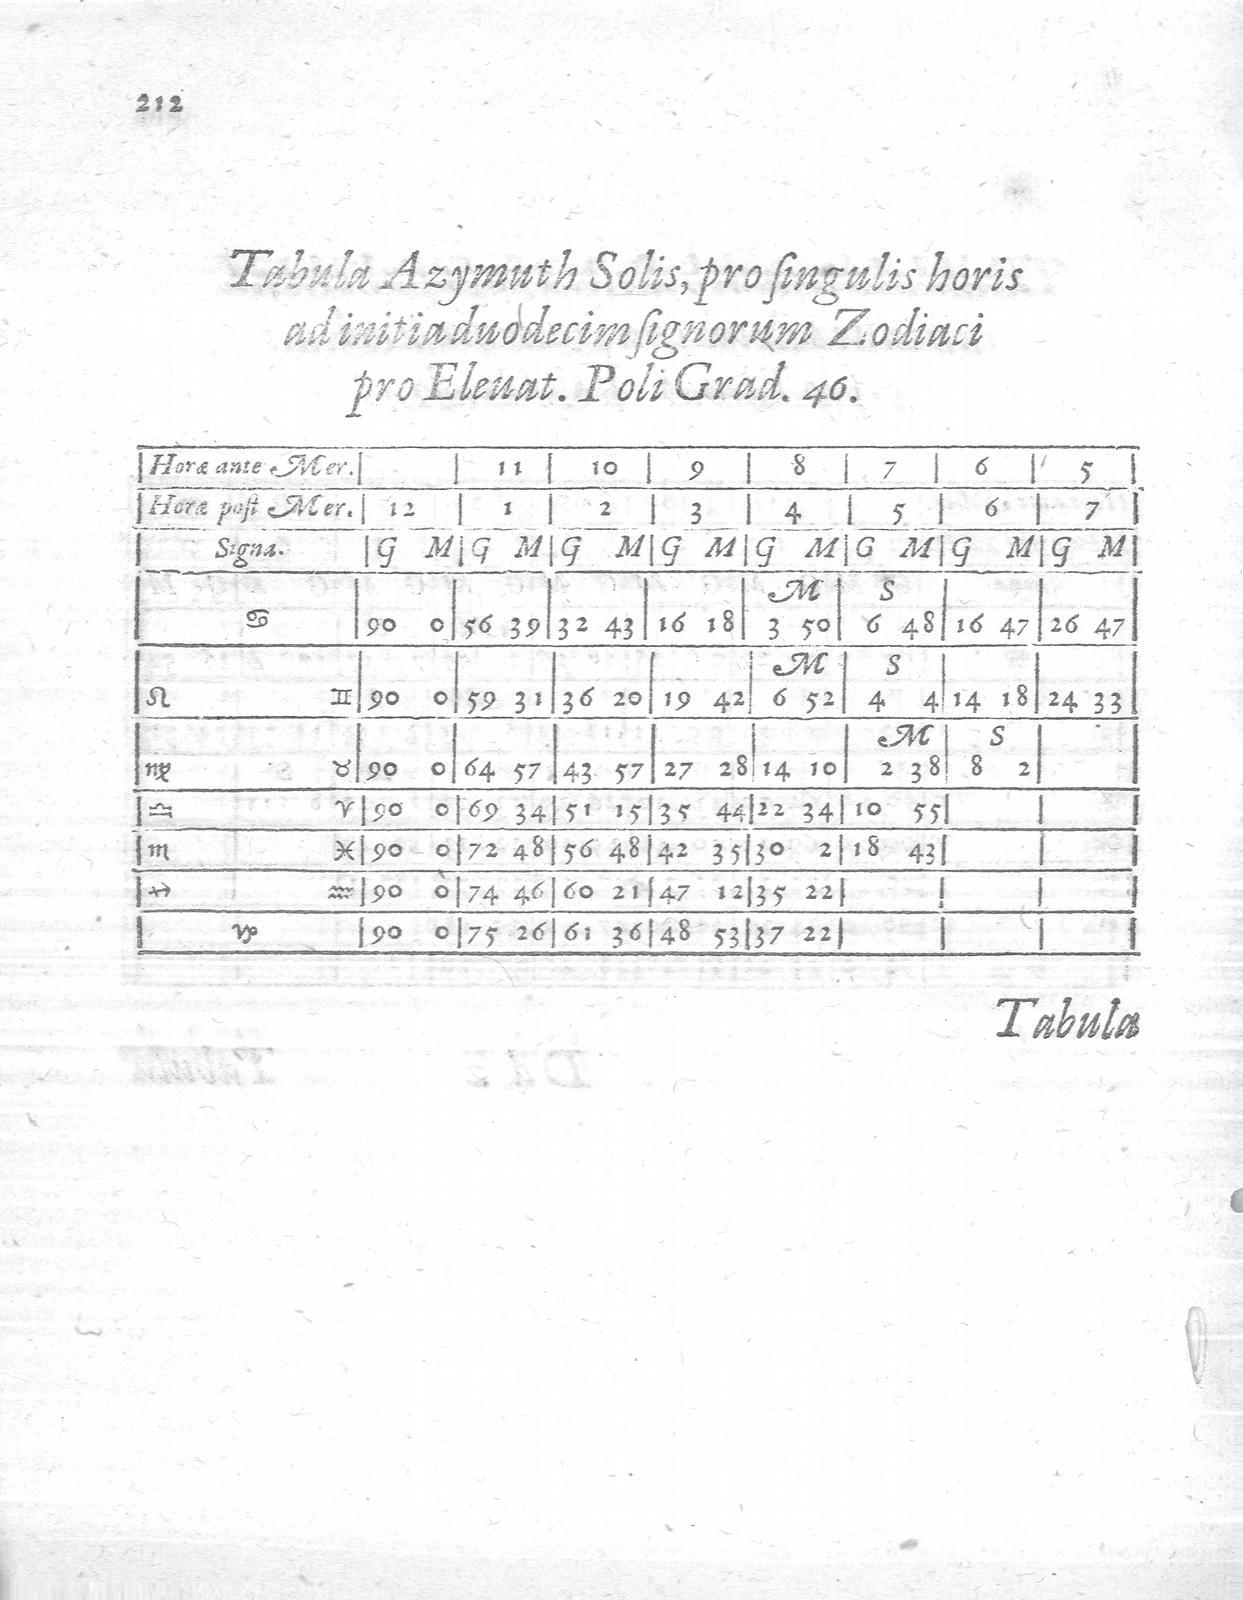 212
Tabula Azymuth Solis, pro ſingulis horis
ad initia duodecim ſignorum Zodiaci
pro Eleuat. Poli Grad. 46.
Horæ ante Mer. 11 10 9 8 7 6 5
Horæ poſt Mer. 12 1 2 3 4 5 6 7
Signa. G M G M G M G M G M G M G M G M
M S
♋ 90 0 56 39 32 43 16 18 3 50 6 48 16 47 26 47
M S
♌ ♊ 90 0 59 31 36 20 19 42 6 52 4 4 14 18 24 33
M S
♍ ♉ 90 0 64 57 43 57 27 28 14 10 2 38 8 2
♎ ♈ 90 0 69 34 51 15 35 44 22 34 10 55
♏ ♓ 90 0 72 48 56 48 42 35 30 2 18 43
♐ ♒ 90 0 74 46 60 21 47 12 35 22
♑ 90 0 75 26 61 36 48 53 37 22
Tabula